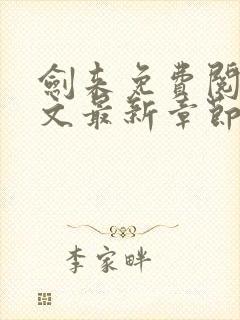 劍来免費閱
文最新章節
李家畔